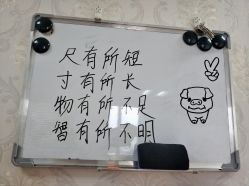 尺有所短
寸有所长
物有所不足
智有所不明